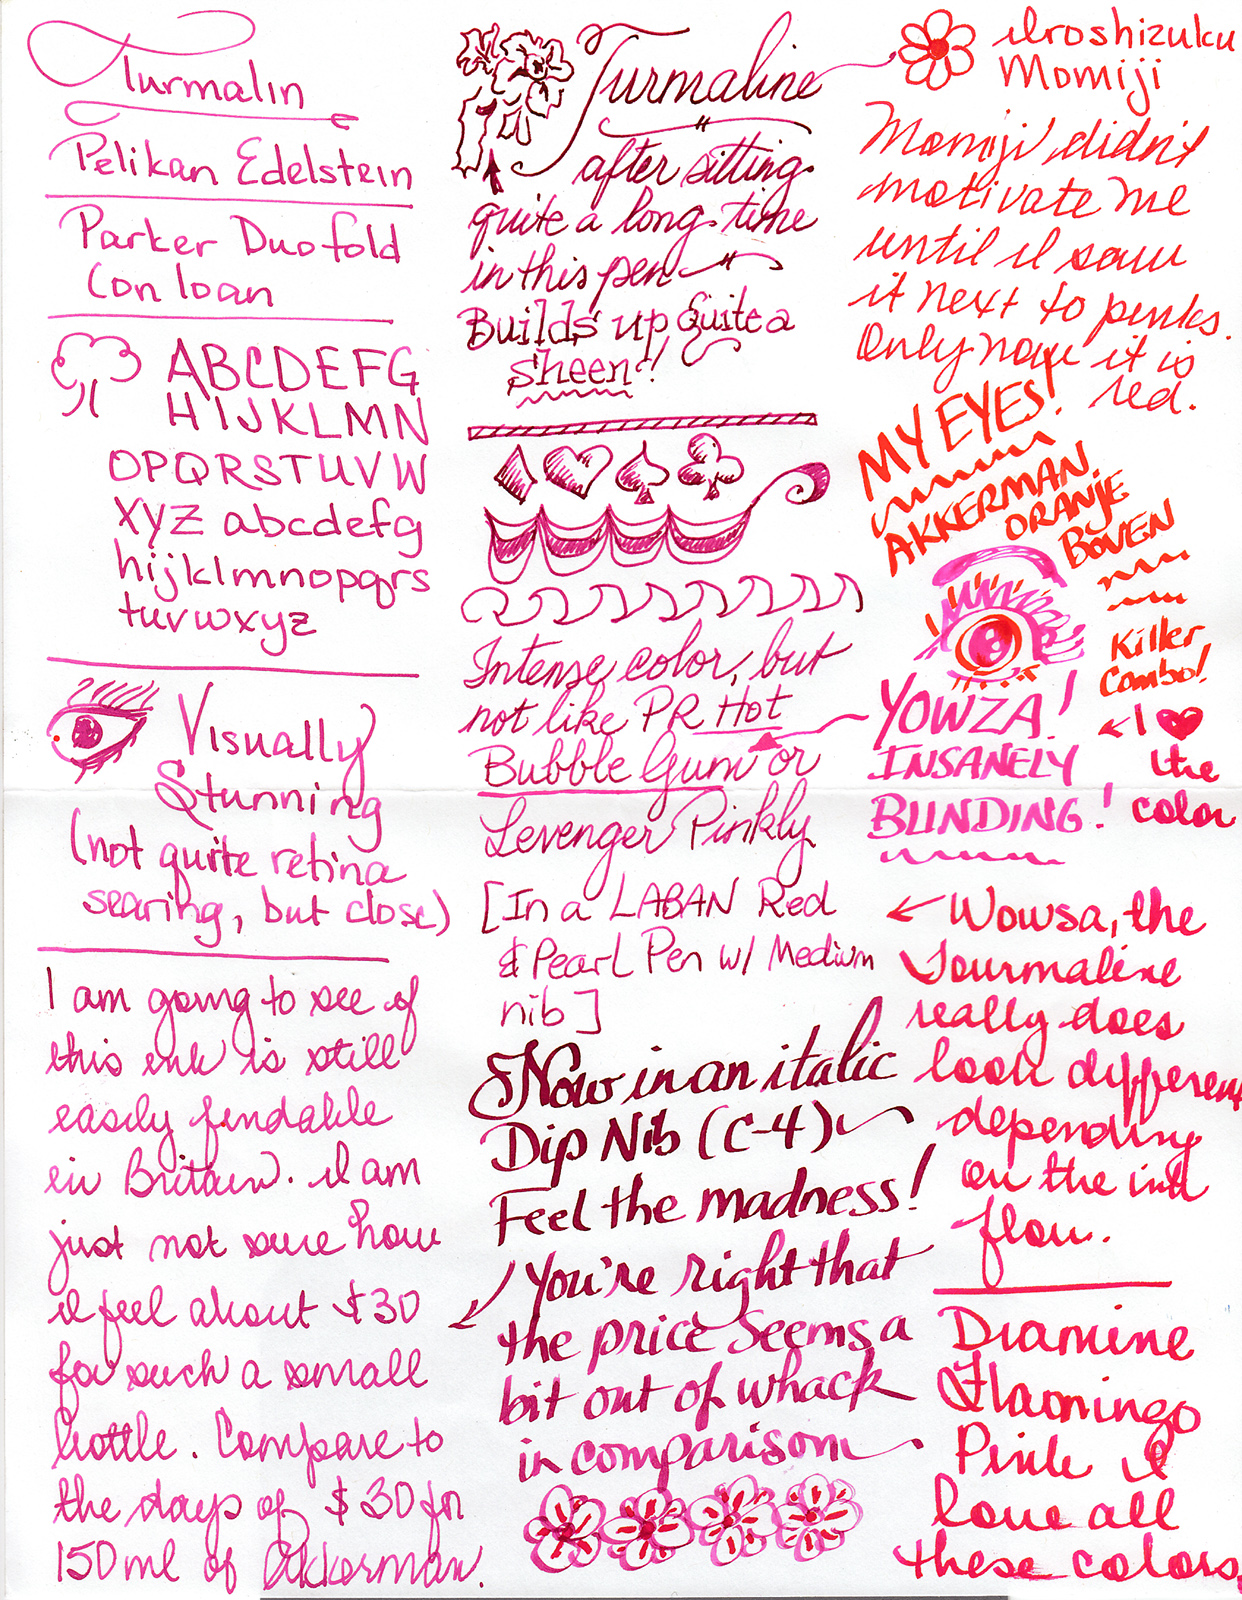 Turmalin
Pelikan Edelstein
Parker Duofold
Con loan
ABCDEFG
HIJKLMN
OPQRSTUVW
XYZ abcdefg
hijklmnopqrs
tuvwxyz
Visually
Stunning
(not quite retina
searing, but close)
I am going to see if
this ink is still
easily findable
in Britain. I am
just not sure how
I feel about $30
for such a small
bottle. Compare to
the days of $30 for
150 ml of Akkerman.
Turmaline
after sitting
quite a long time
in this pen
Builds up Quite a
sheen!
Intense color, but
not like PR Hot
Bubble Gum or
Levenger Pinkly
[In a LABAN Red
& Pearl Pen w/ Medium
nib]
Now in an italic
Dip Nib (C-4)
Feel the madness!
You're right that
the price seems a
bit out of whack
in comparison
Iroshizuku
Momiji
Momiji didn't
motivate me
until I saw
it next to pinks.
Only now it is
red.
MY EYES!
AKKERMAN
ORANJE
BOVEN
Killer
Combo!
YOWZA!
INSANELY
BLINDING!
I ♥
the
color
Wowsa, the
Tourmaline
really does
look different
depending
on the ink
flow.
Diamine
Flamingo
Pink I
love all
these colors.